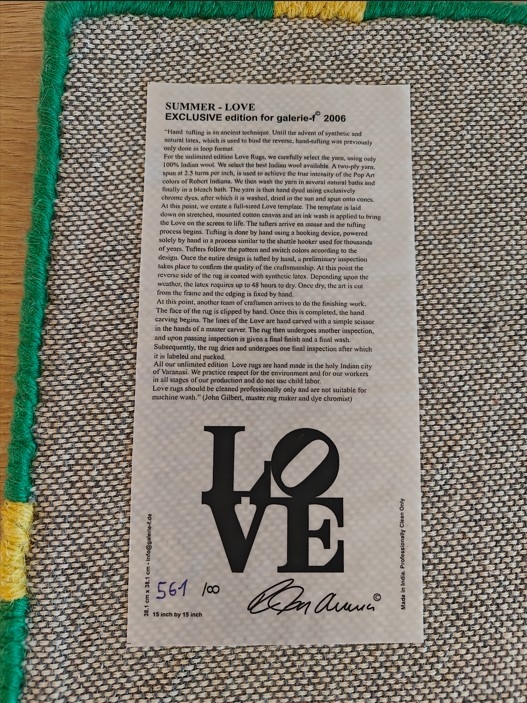 SUMMER - LOVE
EXCLUSIVE edition for galerie-f© 2006
"Hand tufting is an ancient technique. Until the advent of synthetic and
natural latex, which is used to bind the reverse, hand-tufting was previously
only done in loop format.
For the unlimited edition Love Rugs, we carefully select the yarn, using only
100% Indian wool. We select the best Indian wool available. A two-ply yarn,
spun at 2.5 turns per inch, is used to achieve the true intensity of the Pop Art
colors of Robert Indiana. We then wash the yarn in several natural baths and
finally in a bleach bath. The yarn is then hand dyed using exclusively
chrome dyes, after which it is washed, dried in the sun and spun onto cones.
At this point, we create a full-sized Love template. The template is laid
down on stretched, mounted cotton canvas and an ink wash is applied to bring
the Love on the screen to life. The tufters arrive en masse and the tufting
process begins. Tufting is done by hand using a hooking device, powered
solely by hand in a process similar to the shuttle hooker used for thousands
of years. Tufters follow the pattern and switch colors according to the
design. Once the entire design is tufted by hand, a preliminary inspection
takes place to confirm the quality of the craftsmanship. At this point the
reverse side of the rug is coated with synthetic latex. Depending upon the
weather, the latex requires up to 48 hours to dry. Once dry, the art is cut
from the frame and the edging is fixed by hand.
At this point, another team of craftsmen arrives to do the finishing work.
The face of the rug is clipped by hand. Once this is completed, the hand
carving begins. The lines of the Love are hand carved with a simple scissor
in the hands of a master carver. The rug then undergoes another inspection,
and upon passing inspection is given a final finish and a final wash.
Subsequently, the rug dries and undergoes one final inspection after which
it is labeled and packed.
All our unlimited edition Love rugs are hand made in the holy Indian city
of Varanasi. We practice respect for the environment and for our workers
in all stages of our production and do not use child labor.
Love rugs should be cleaned professionally only and are not suitable for
machine wash." (John Gilbert, master rug maker and dye chromist)
LO
VE
38,1 cm x 38,1 cm - info@galerie-f.de
561 /∞
15 inch by 15 inch
©
Made in India. Professionally Clean Only